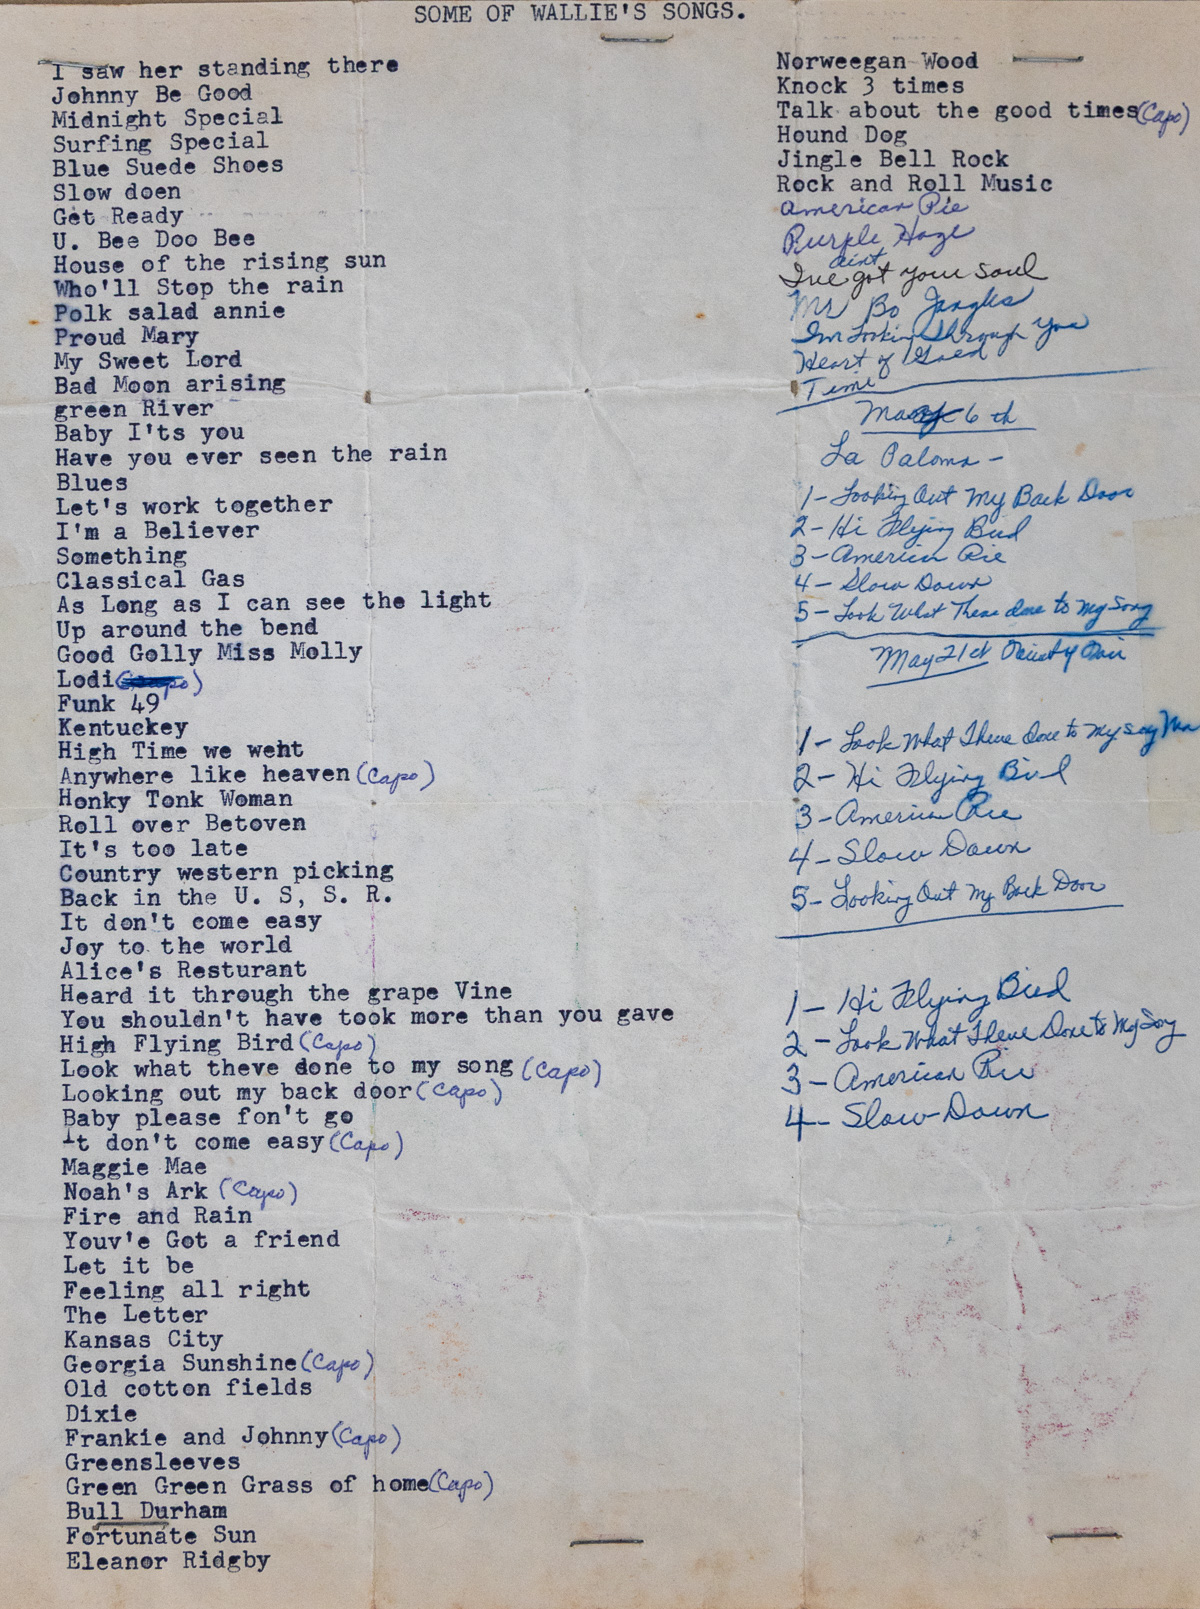 SOME OF WALLIE'S SONGS.
I saw her standing there
Johnny Be Good
Midnight Special
Surfing Special
Blue Suede Shoes
Slow doen
Get Ready
U. Bee Doo Bee
House of the rising sun
Who'll Stop the rain
Polk salad annie
Proud Mary
My Sweet Lord
Bad Moon arising
green River
Baby I'ts you
Have you ever seen the rain
Blues
Let's work together
I'm a Believer
Something
Classical Gas
As Long as I can see the light
Up around the bend
Good Golly Miss Molly
Lodi (Capo)
Funk 49
Kentuckey
High Time we weht
Anywhere like heaven (Capo)
Honky Tonk Woman
Roll over Betoven
It's too late
Country western picking
Back in the U. S, S. R.
It don't come easy
Joy to the world
Alice's Resturant
Heard it through the grape Vine
You shouldn't have took more than you gave
High Flying Bird (Capo)
Look what theve done to my song (Capo)
Looking out my back door (Capo)
Baby please fon't go
It don't come easy (Capo)
Maggie Mae
Noah's Ark (Capo)
Fire and Rain
Youv'e Got a friend
Let it be
Feeling all right
The Letter
Kansas City
Georgia Sunshine (Capo)
Old cotton fields
Dixie
Frankie and Johnny (Capo)
Greensleeves
Green Green Grass of home (Capo)
Bull Durham
Fortunate Sun
Eleanor Ridgby
Norweegan Wood
Knock 3 times
Talk about the good times (Capo)
Hound Dog
Jingle Bell Rock
Rock and Roll Music
American Pie
Purple Haze
aint
I've got your soul
Mr Bo Jangles
Im Lookin Through You
Heart of Gold
Time
May 6 th
La Paloma -
1- Looking Out My Back Door
2- Hi Flying Bird
3- American Pie
4- Slow Down
5- Look What Theve done to My Song
May 21st
1- Look What Theve Done to My Song Ma
2- Hi Flying Bird
3- American Pie
4- Slow Down
5- Looking Out My Back Door
1- Hi Flying Bird
2- Look What Theve Done to My Song
3- American Pie
4- Slow Down